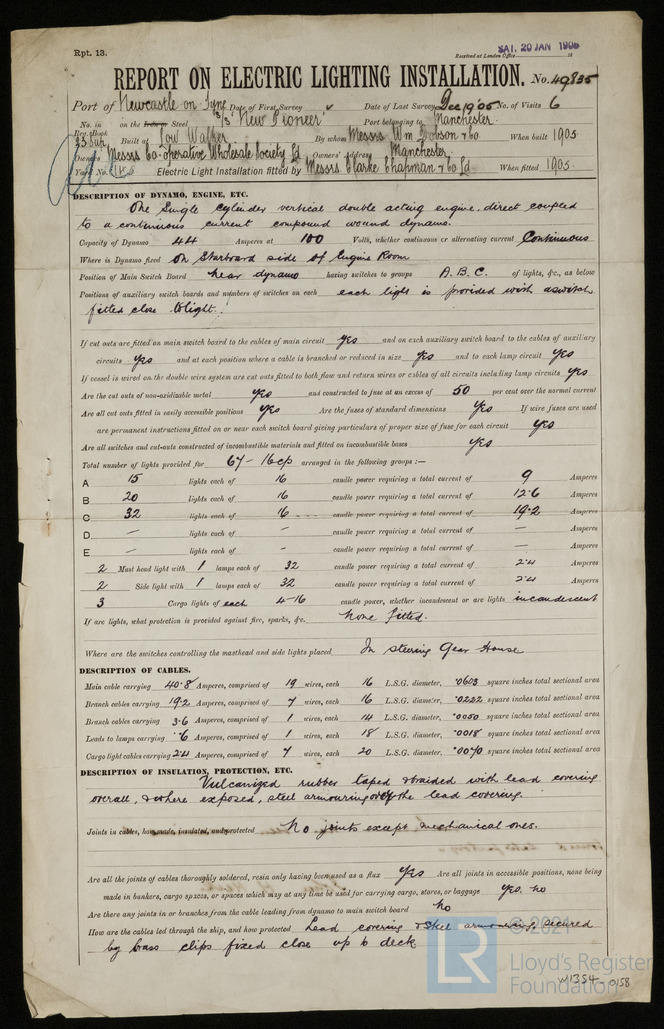 Rpt. 13.
Received at London Office SAT. 20 JAN 1906 18
REPORT ON ELECTRIC LIGHTING INSTALLATION. No. 49835
Port of Newcastle on Tyne Date of First Survey Date of Last Survey Dec 19 '05 No. of Visits 6
No. in Reg. Book on the Iron or Steel S/S "New Pioneer" Port belonging to Manchester
33 Sup Built at Low Walker By whom Messrs Wm Dobson & Co When built 1905
Owners Messrs Co-operative Wholesale Society Ld Owners' Address Manchester
Yard No. Electric Light Installation fitted by Messrs Clarke Chapman & Co Ld When fitted 1905
DESCRIPTION OF DYNAMO, ENGINE, ETC.
One Single cylinder vertical double acting engine, direct coupled
to a continuous current compound wound dynamo.
Capacity of Dynamo 44 Amperes at 100 Volts, whether continuous or alternating current Continuous
Where is Dynamo fixed On Starboard side of Engine Room
Position of Main Switch Board near dynamo having switches to groups A. B. C. of lights, &c., as below
Positions of auxiliary switch boards and numbers of switches on each each light is provided with a switch
fitted close to light.
If cut outs are fitted on main switch board to the cables of main circuit yes and on each auxiliary switch board to the cables of auxiliary
circuits yes and at each position where a cable is branched or reduced in size yes and to each lamp circuit yes
If vessel is wired on the double wire system are cut outs fitted to both flow and return wires or cables of all circuits including lamp circuits yes
Are the cut outs of non-oxidizable metal yes and constructed to fuse at an excess of 50 per cent over the normal current
Are all cut outs fitted in easily accessible positions yes Are the fuses of standard dimensions yes If wire fuses are used
are permanent instructions fitted on or near each switch board giving particulars of proper size of fuse for each circuit yes
Are all switches and cut-outs constructed of incombustible materials and fitted on incombustible bases yes
Total number of lights provided for 67 - 16cp arranged in the following groups :—
A 15 lights each of 16 candle power requiring a total current of 9 Amperes
B 20 lights each of 16 candle power requiring a total current of 12.6 Amperes
C 32 lights each of 16 candle power requiring a total current of 19.2 Amperes
D — lights each of — candle power requiring a total current of — Amperes
E — lights each of — candle power requiring a total current of — Amperes
2 Mast head light with 1 lamps each of 32 candle power requiring a total current of 2.4 Amperes
2 Side light with 1 lamps each of 32 candle power requiring a total current of 2.4 Amperes
3 Cargo lights of each 4-16 candle power, whether incandescent or arc lights incandescent
If arc lights, what protection is provided against fire, sparks, &c. None fitted.
Where are the switches controlling the masthead and side lights placed In steering Gear House
DESCRIPTION OF CABLES.
Main cable carrying 40.8 Amperes, comprised of 19 wires, each 16 L.S.G. diameter, .0603 square inches total sectional area
Branch cables carrying 19.2 Amperes, comprised of 7 wires, each 16 L.S.G. diameter, .0222 square inches total sectional area
Branch cables carrying 3.6 Amperes, comprised of 1 wires, each 14 L.S.G. diameter, .0050 square inches total sectional area
Leads to lamps carrying .6 Amperes, comprised of 1 wires, each 18 L.S.G. diameter, .0018 square inches total sectional area
Cargo light cables carrying 2.4 Amperes, comprised of 7 wires, each 20 L.S.G. diameter, .0070 square inches total sectional area
DESCRIPTION OF INSULATION, PROTECTION, ETC.
Vulcanized rubber taped & braided with lead covering
overall, & where exposed, steel armouring over the lead covering.
Joints in cables, how made, insulated, and protected No joints except mechanical ones.
Are all the joints of cables thoroughly soldered, resin only having been used as a flux Yes Are all joints in accessible positions, none being
made in bunkers, cargo spaces, or spaces which may at any time be used for carrying cargo, stores, or baggage yes. no
Are there any joints in or branches from the cable leading from dynamo to main switch board no
How are the cables led through the ship, and how protected Lead covering & steel armouring, secured
by brass clips fixed close up to deck
© 2021
LR
Lloyd's Register
Foundation
W1354-0158